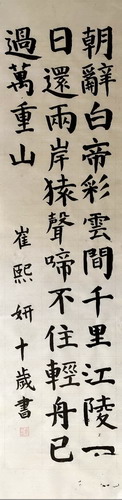 朝辭白帝彩雲間千里江陵一
日還兩岸猿聲啼不住輕舟已
過萬重山
崔熙妍十歲書